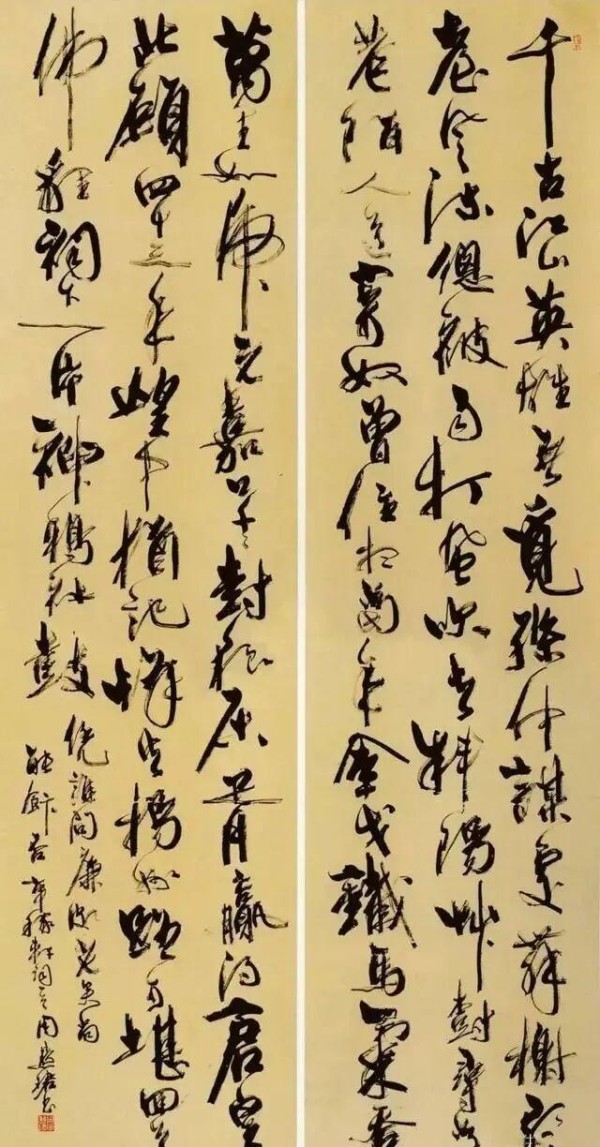 千古江山英雄無覓孫仲謀處舞榭歌
臺風流總被雨打風吹去斜陽草樹尋常
巷陌人道寄奴曾住想當年金戈鐵馬氣吞
萬里如虎元嘉草草封狼居胥贏得倉皇
北顧四十三年望中猶記烽火揚州路可堪回
佛貍祠下一片神鴉社鼓
憑誰問廉頗老矣尚
能飯否 辛稼軒詞 周